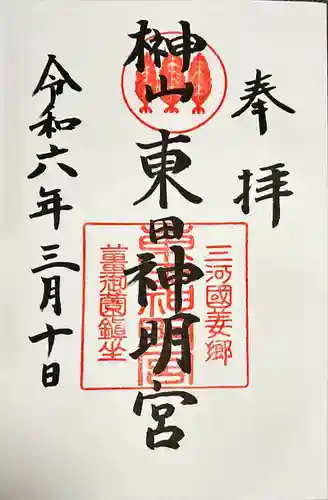 奉拝
榊山
東田神明宮
三河國姜郷
薑御園鎮坐
令和六年三月十日